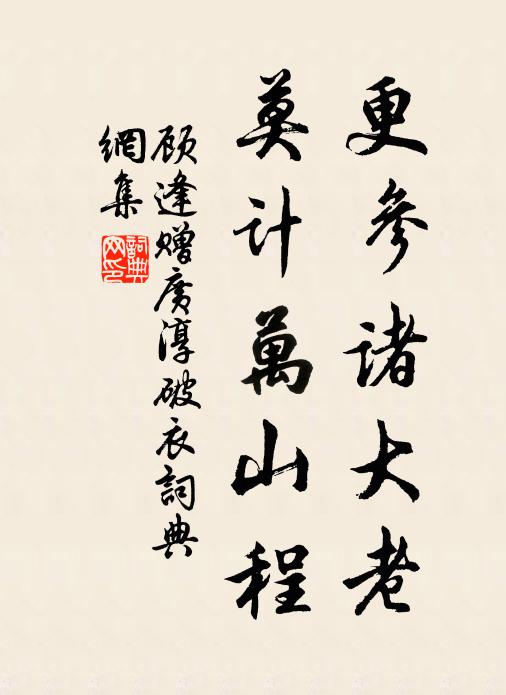 更參諸大老
莫计萬山程
顾逢赠廣淳破衣詞典
網集
詞典
网印